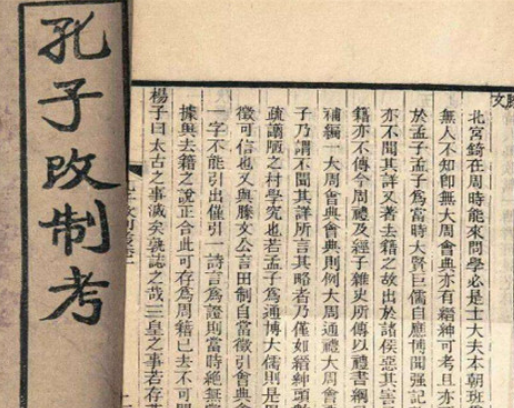 孔子改制考
文
北宮錡在周時能來問學必是士大夫本朝班
無人不知卽無大周會典亦有縉紳可考且亦
於孟子孟子爲當時大賢巨儒自應博聞強記
亦不聞其詳又著去籍之故出於諸侯惡其害
籍亦不傳今周禮及經子雜史所傳以禮書綱
補編一大周會典會典則例大周通禮大周會
子乃謂不聞其詳所言其略者乃僅如縉紳頭數
疏謭陋之村學究也若孟子爲通博大儒則是周
徵可信也又與滕文公言田制自當徵引會典會
一字不能引出僅引一詩言爲證則當時絕無
據與去籍之說正合此可存爲周籍已去不可
楊子曰太古之事滅矣孰誌之哉三皇之事若存